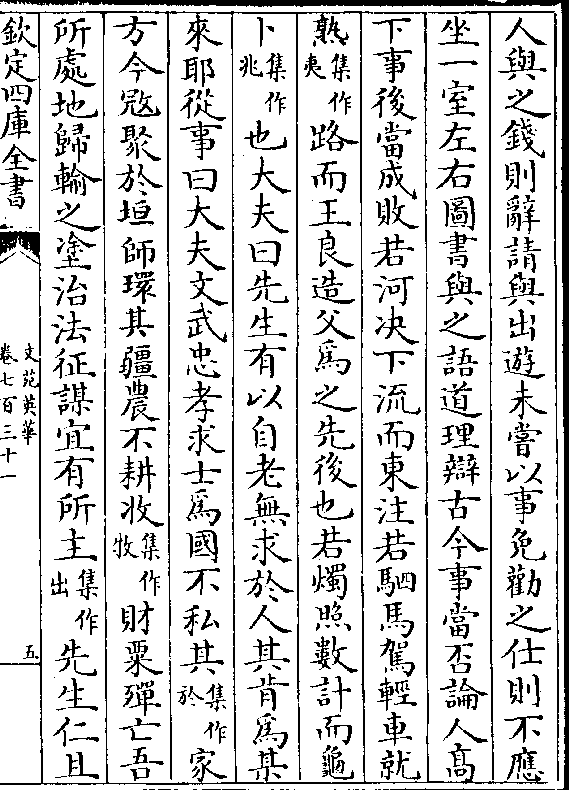 人與之錢則辭請與出遊未嘗以事免勸之仕則不應
坐一室左右圖書與之語道理辯古今事當否論人髙
下事後當成敗若河决下流而東注若駟馬駕輕車就
熟集作夷路而王良造父為之先後也若燭照數計而龜
卜集作兆也大夫曰先生有以自老無求於人其肯為某
來耶從事曰大夫文武忠孝求士為國不私其集作於家
方今㓂聚於垣師環其疆農不耕收集作牧財粟殫亡吾
所處地歸輸之塗治法征謀宜有所主集作出先生仁且
欽定四庫全書
文苑英華
卷七百三十一
五